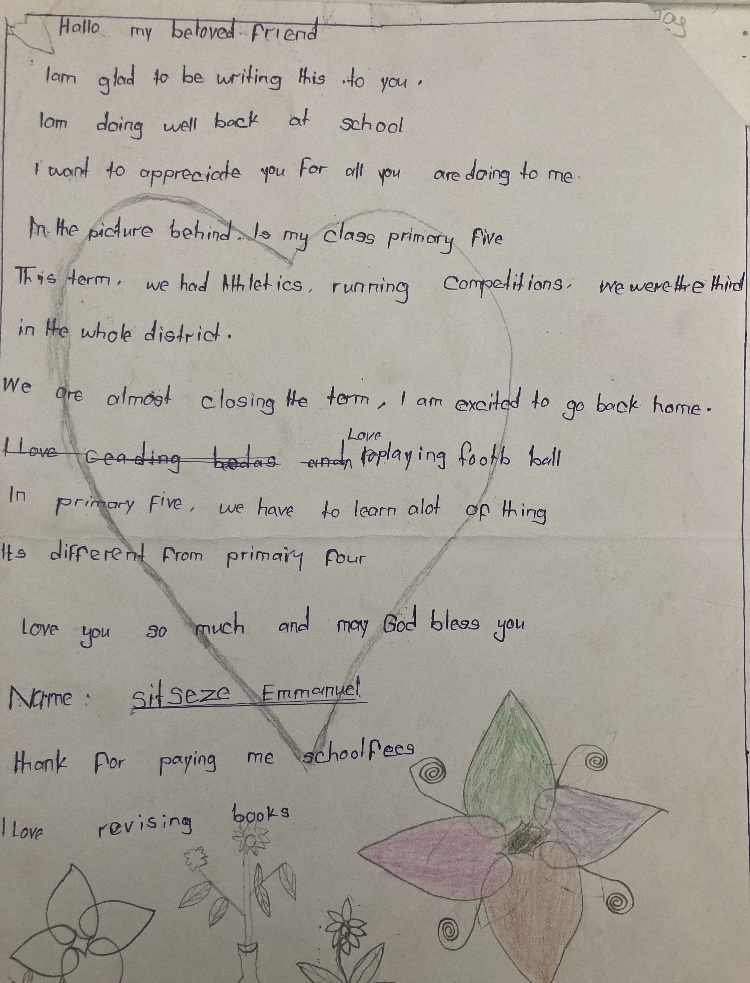 Joy
Hallo my beloved friend
Iam glad to be writing this to you.
Iam doing well back at school
I want to appreciate you for all you are doing to me.
In the picture behind. Is my class primary five
This term, we had Athletics, running Competitions. We were the third
in the whole district.
We are almost closing the term, I am excited to go back home.
I Love reading and Love playing footb ball
In primary Five, we have to learn alot of thing
Its different from primary four
Love you so much and may God bless you
Name: Sitseze Emmanuel
thank for paying me schoolfees
I Love revising books